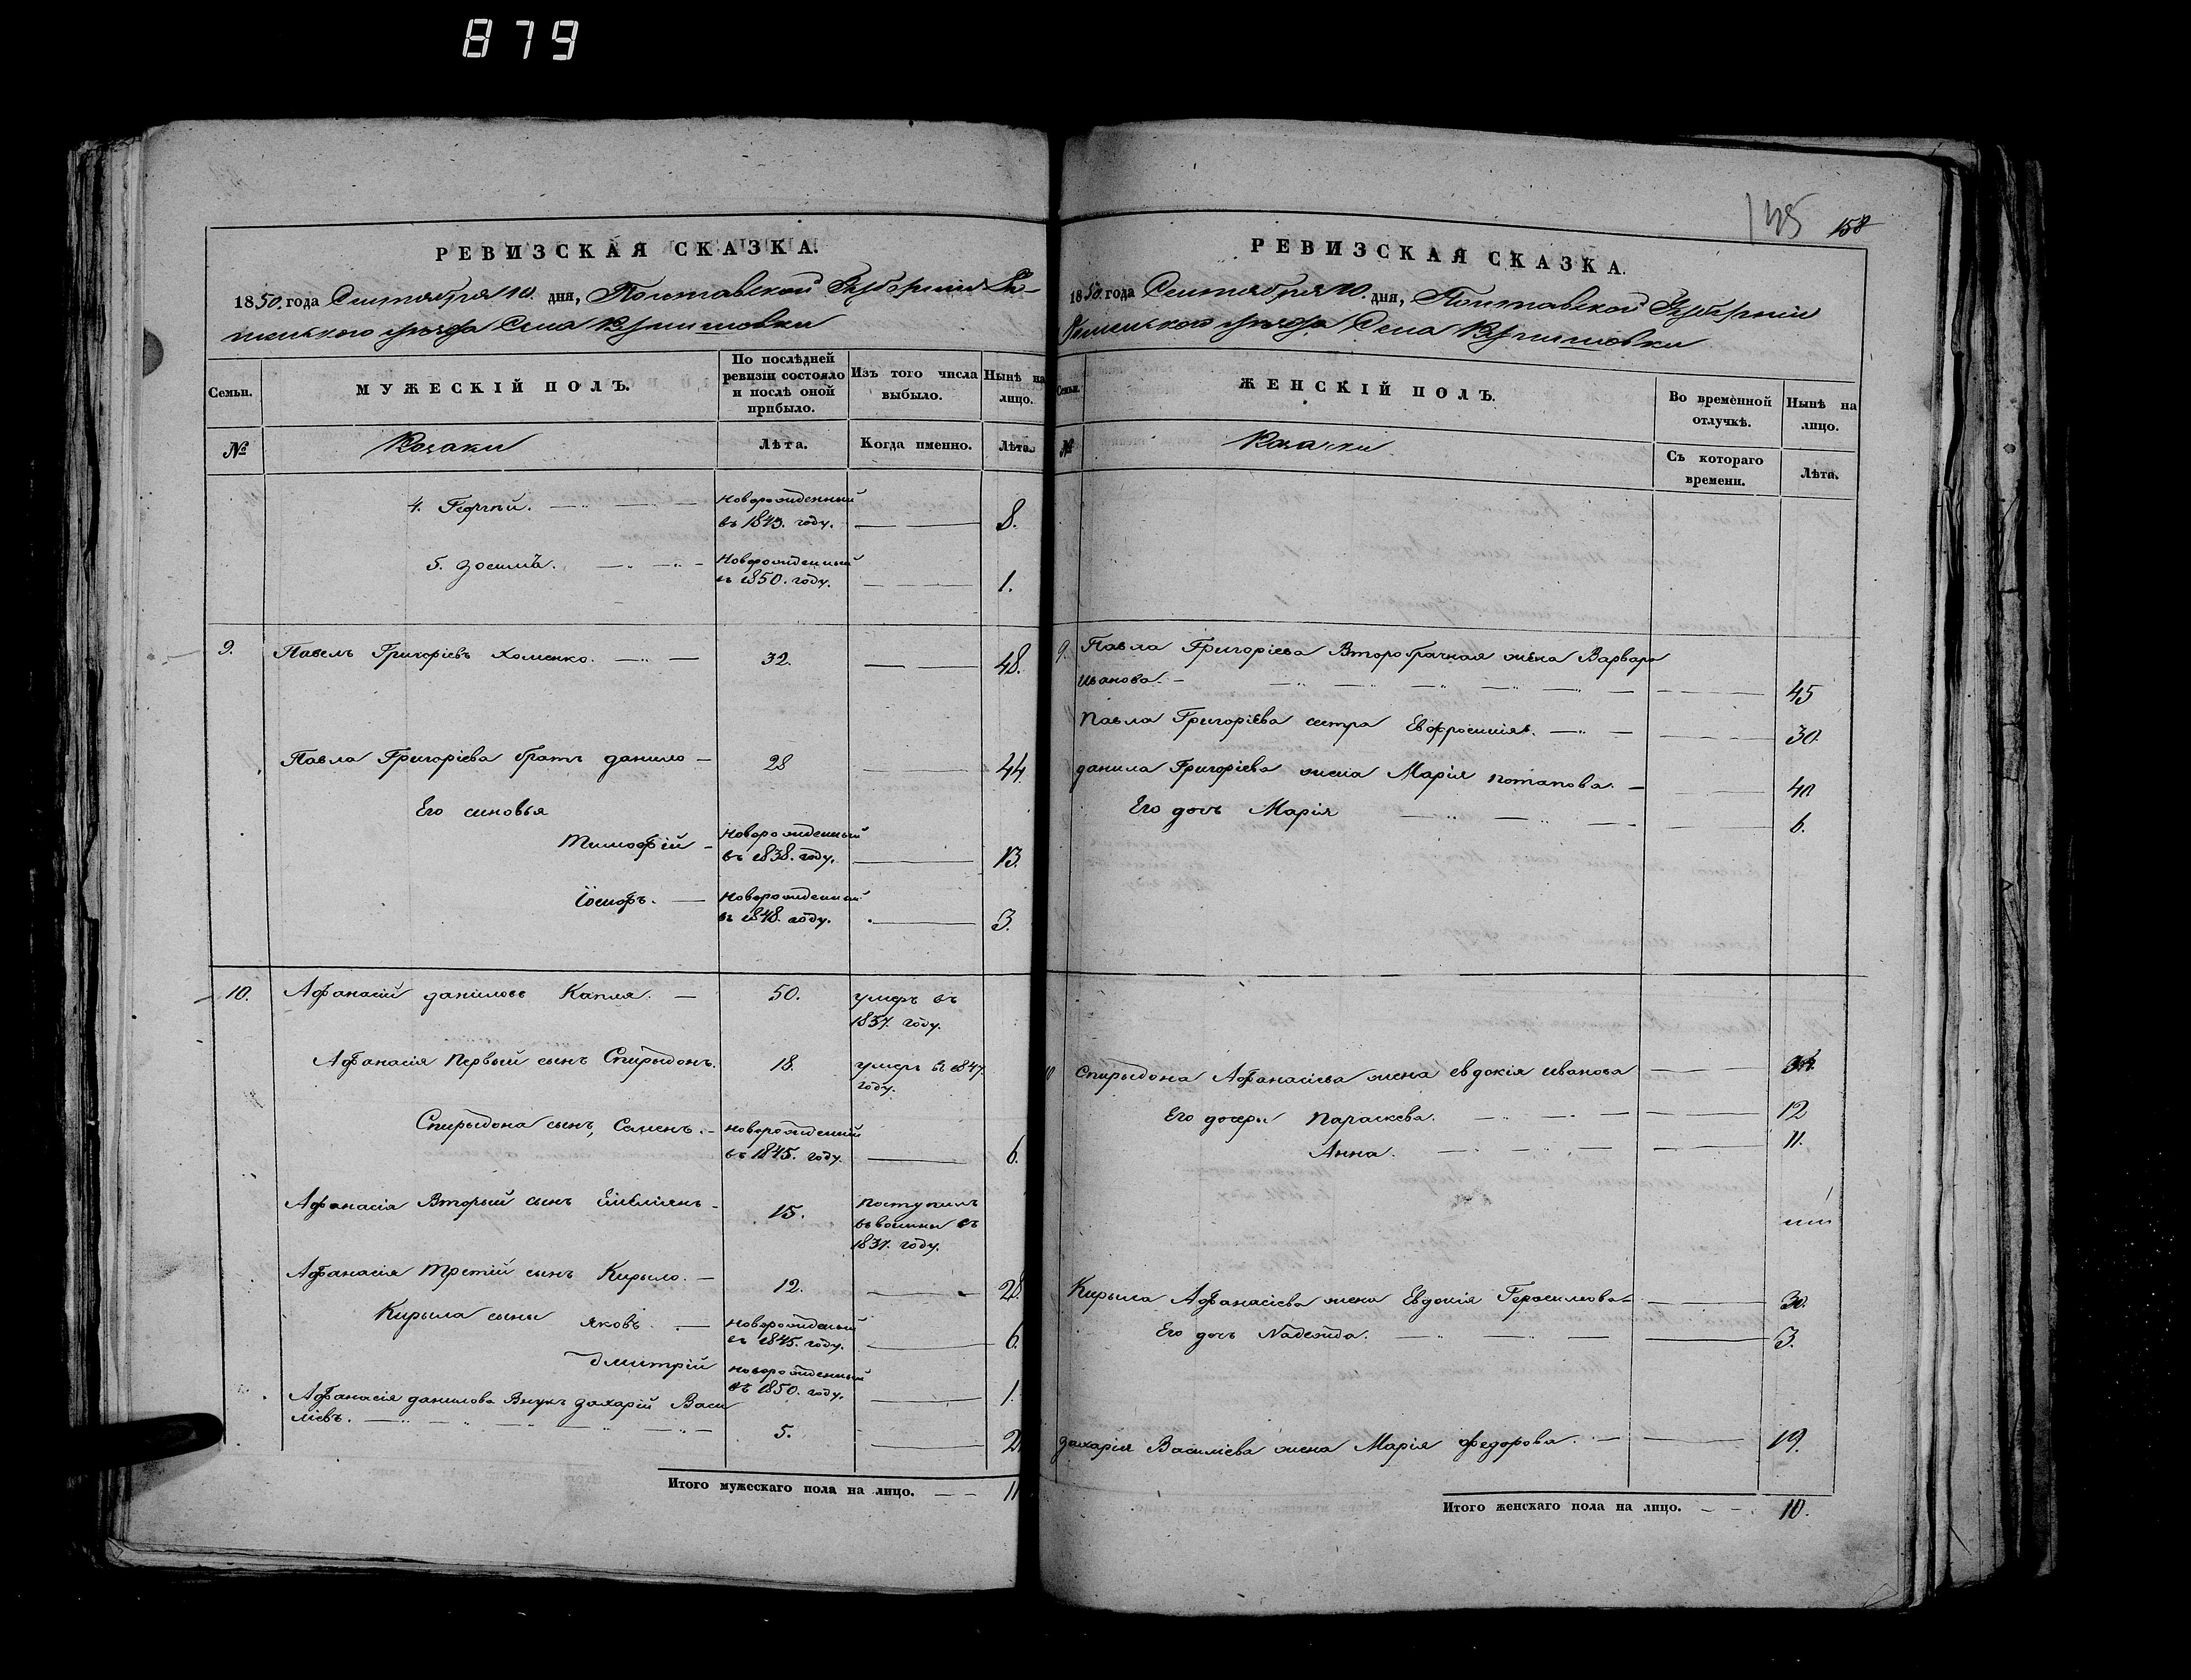 879
РЕВИЗСКАЯ СКАЗКА.
1850. года Сентября 10. дня, Полтавской Губерніи
уезда Села
Семьи.
МУЖЕСКІЙ ПОЛЪ.
По послѣдней ревизіи состояло и послѣ оной прибыло.
Изъ того числа выбыло.
Нынѣ на лицо.
№
Козаки
Лѣта.
Когда именно.
Лѣта.
4. Георгий. новорожденный въ 1843. году. 8.
5. Зосимъ. новорожденный въ 1850. году. 1.
9. Павелъ Григоріевъ Хоменко. 32. 48.
Павла Григоріева братъ данило 28 44.
Его синовья
Тимофѣй новорожденный въ 1838. году. 13.
Іосифъ. новорожденный въ 1848. году. 3.
10. Афанасій даниловъ Капля. 50. умеръ въ 1837. году.
Афанасія первый сынъ Спирыдонъ. 18. умеръ въ 1847. году.
Спирыдона сынъ, Семенъ. новорожденній въ 1845. году. 6.
Афанасія Вторый сынъ Емеліянъ 15. поступилъ въ воины въ 1837. году.
Афанасія Третій сынъ Кирыло. 12. 28.
Кирыла сыны яковъ. новорожденый въ 1845. году. 6.
дмитрій новорожденный въ 1850. году. 1.
Афанасія данилова Внукъ Захарій Васи
ліевъ. 5. 2
Итого мужескаго пола на лицо. 11
145 158
РЕВИЗСКАЯ СКАЗКА.
1850. года Сентября 10. дня, Полтавской Губерніи
уезда Села
Семьи.
ЖЕНСКІЙ ПОЛЪ.
Во временной отлучкѣ.
Нынѣ на лицо.
№
Козачки
Съ котораго времени.
Лѣта.
9. Павла Григоріева Второбрачная жена Варвара
иванова. 45
Павла Григоріева сестра Евфросинія. 30.
данила Григоріева жена Марія потапова. 40
Его дочь Марія 6.
10 Спирыдона Афанасіева жена евдокія иванова
Его дочери параскева. 12
Анна. 11.
Кирыла Афанасіева жена Евдокія Герасимова 30.
Его дочь Надежда. 3.
Захарія Василіева жена Марія федорова. 19.
Итого женскаго пола на лицо. 10.